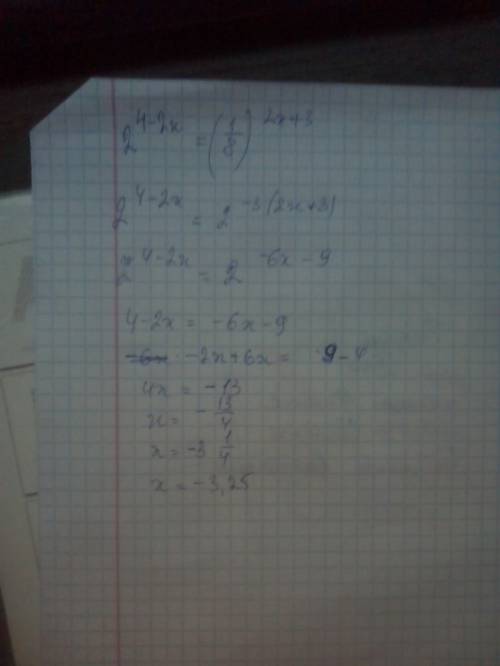 2^(4-2x) = (1/8)^(2x+3)
2^(4-2x) = 2^(-3(2x+3))
2^(4-2x) = 2^(-6x-9)
4-2x = -6x-9
-2x+6x = 9-4
4x = -13
x = -13/4
x = -3 1/4
x = -3,25